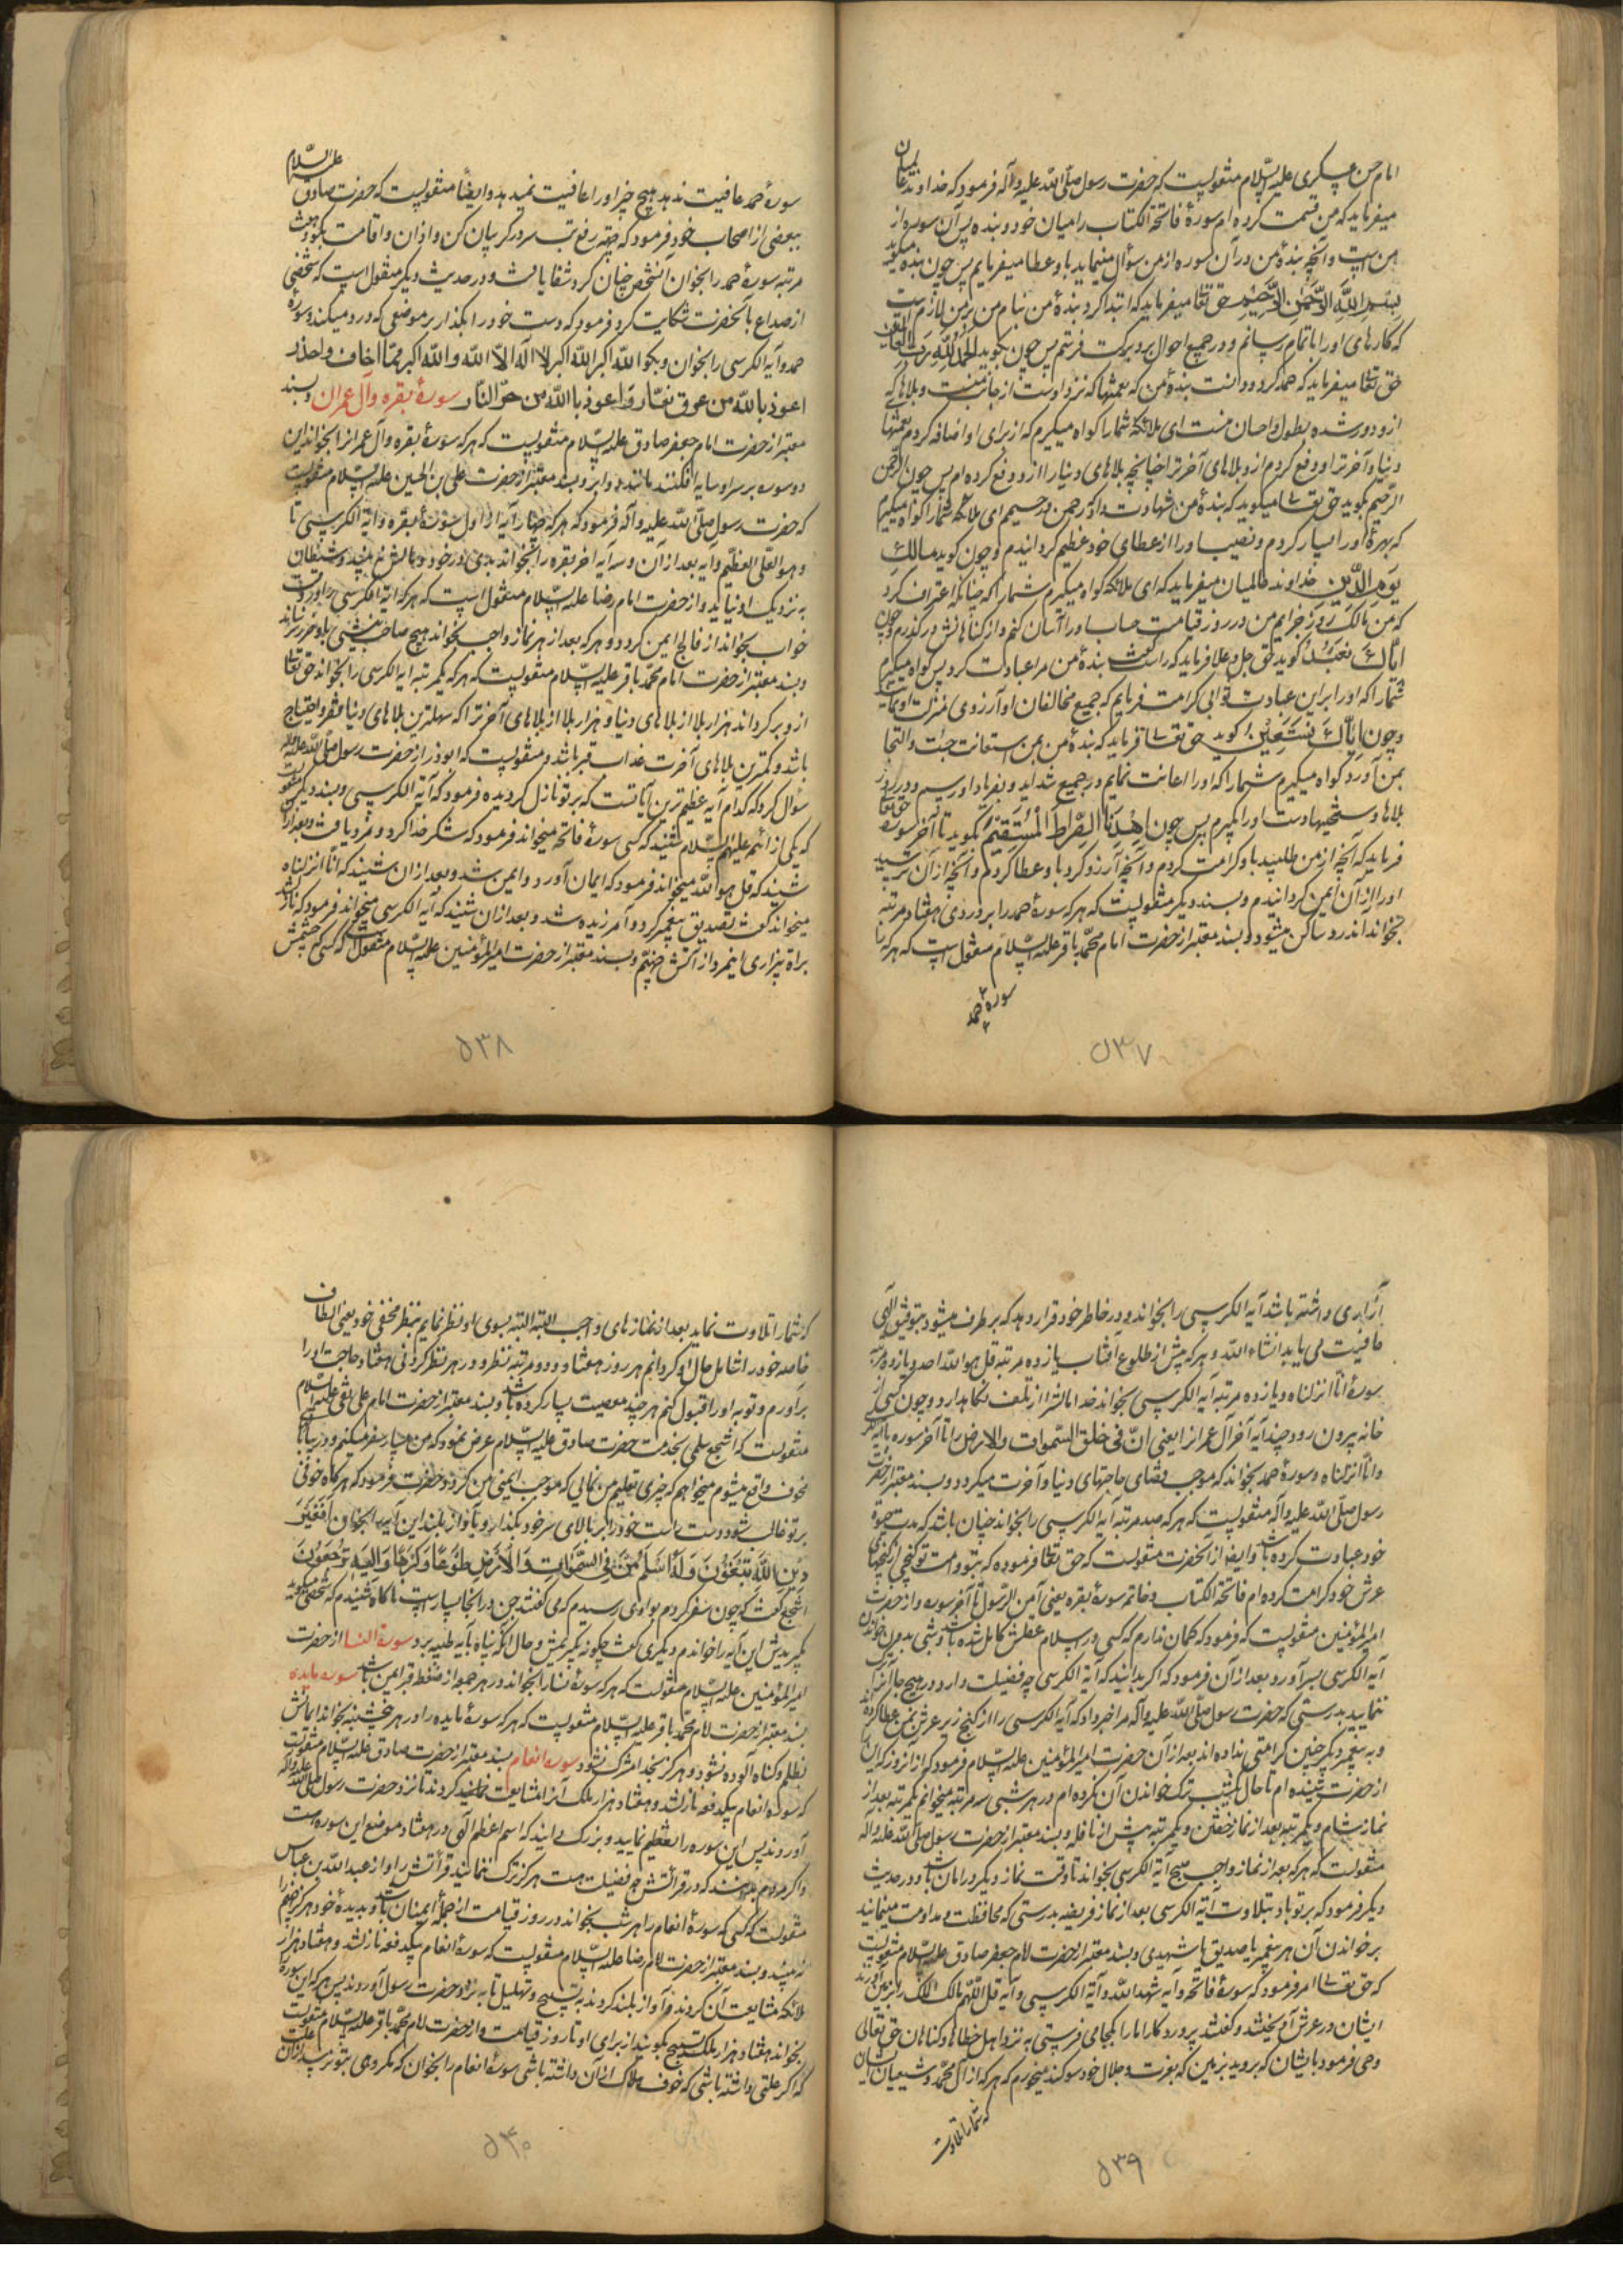 امام حسن عسکری علیه السّلام منقولیست که حضرت رسول صلّی اللّه علیه و آله فرمود که خداوند عالمیان
میفرماید که من قسمت کرده ام سورهٔ فاتحة الکتاب را میان خود و بنده پس آن سوره از
من است و آنچه بندهٔ من در آن سوره از من سؤال مینماید باو عطا میفرمایم پس چون بنده میگوید
بسم اللّه الرّحمن الرّحیم حق تعالی میفرماید که ابتدا کرد بندهٔ من بنام من بر من لازمست
که کارهای او را باتمام رسانم و در جمیع احوال برو برکت فرستم پس چون بگوید الحمد للّه ربّ العالمین
حق تعالی میفرماید که حمد کرد و دانست بندهٔ من که نعمتها که نزد اوست از جانب منست و بلاها که
ازو دور شده بطول و احسان منست ای ملائکه شما را گواه میگیرم که از برای او اضافه کردم نعمتهای
دنیا و آخرت را و دفع کردم ازو بلاهای آخرت را چنانچه بلاهای دنیا را ازو دفع کرده ام پس چون الرّحمن
الرّحیم بگوید حق تعالی میگوید که بندهٔ من شهادت داد که رحمن و رحیمم ای ملائکه شما را گواه میگیرم
که بهرهٔ او را بسیار کردم و نصیب او را از عطای خود عظیم گردانیدم و چون گوید مالک
یوم الدّین خداوند عالمیان میفرماید که ای ملائکه گواه میگیرم شما را که چنانکه اعتراف کرد
که من مالک روز جزایم من در روز قیامت حساب او را آسان کنم و از گناهانش درگذرم و چون
ایّاک نعبد گوید حق جلّ و علا فرماید که راست گفت بندهٔ من مرا عبادت کرد پس گواه میگیرم
شما را که او را بر این عبادت ثوابی کرامت فرمایم که جمیع مخالفان او آرزوی منزلت او نمایند
و چون ایّاک نستعین گوید حق تعالی فرماید که بندهٔ من بمن استعانت جست و التجا
بمن آورد گواه میگیرم شما را که او را اعانت نمایم در جمیع شداید و بفریاد او رسم و در روز
بلاها دست او را بگیرم پس چون اهدنا الصّراط المستقیم بگوید تا آخر سوره حق تعالی
فرماید که آنچه از من طلبید باو کرامت کردم و آنچه آرزو کرد باو عطا کردم و آنچه از آن ترسید
او را از آن ایمن گردانیدم و بسند دیگر منقولیست که هر که سورهٔ حمد را بر دردی هفتاد مرتبه
بخواند اندرد ساکن میشود و بسند معتبر از حضرت امام محمّد باقر علیه السّلام منقول است که هر که را
سوره حمد
۵۳۷
سورهٔ حمد عافیت ندهد هیچ چیز او را عافیت نمیدهد و ایضاً منقولیست که حضرت صادق علیه السّلام
ببعضی از اصحاب خود فرمود که جهة رفع تب سر در گریبان کن و اذان و اقامت بگو و هفت
مرتبه سورهٔ حمد را بخوان آنشخص چنان کرد شفا یافت و در حدیث دیگر منقول است که شخصی
از صداع بآنحضرت شکایت کرد فرمود که دست خود را بگذار بر موضعی که درد میکند و سورهٔ
حمد و آیة الکرسی را بخوان و بگو اللّه اکبر اللّه اکبر لا اله الّا اللّه و اللّه اکبر ممّا اخاف و احذر
اعوذ باللّه من عرق نعّار و اعوذ باللّه من حرّ النّار سورهٔ بقره و آل عمران و بسند
معتبر از حضرت امام جعفر صادق علیه السّلام منقولیست که هر که سورهٔ بقره و آل عمران را بخواند این
دو سوره بر سر او سایه افکنند مانند دو ابر و بسند معتبر از حضرت علی بن الحسین علیه السّلام منقولیست
که حضرت رسول صلّی اللّه علیه و آله فرمود که هر که چهار آیه از اول سورهٔ بقره و آیة الکرسی تا
و هو العلی العظیم و آیه بعد از آن و سه آیه آخر بقره را بخواند بدی در خود و مالش نه بیند و شیطان
به نزدیک او نیاید و از حضرت امام رضا علیه السّلام منقول است که هر که آیة الکرسی را در وقت
خواب بخواند از فالج ایمن گردد و هر که بعد از هر نماز واجب بخواند هیچ صاحب نیشی باو ضرر نرساند
و بسند معتبر از حضرت امام محمّد باقر علیه السّلام منقولیست که هر که یکمرتبه آیة الکرسی را بخواند حق تعالی
ازو برگرداند هزار بلا از بلاهای دنیا و هزار بلا از بلاهای آخرت را که سهلترین بلاهای دنیا فقر و احتیاج
باشد و کمترین بلاهای آخرت عذاب قبر باشد و منقولیست که ابوذر از حضرت رسول صلّی اللّه علیه و آله
سؤال کرد که کدام آیه عظیم ترین آیاتست که بر تو نازل گردیده فرمود که آیة الکرسی و بسند دیگر منقولست
که یکی از ائمه علیهم السّلام شنید که کسی سورهٔ فاتحه میخواند فرمود که شکر خدا کرد و مزد یافت و بعد از آن
شنید که قل هو اللّه میخواند فرمود که ایمان آورد و ایمن شد و بعد از آن شنید که انّا انزلناه
میخواند گفت تصدیق پیغمبر کرد و آمرزیده شد و بعد از آن شنید که آیة الکرسی میخواند فرمود که نازل شد
براة بیزاری اینمرد از آتش جهنّم و بسند معتبر از حضرت امیرالمؤمنین علیه السّلام منقول است که کسی که چشمش
۵۳۸
آزاری داشته باشد آیة الکرسی را بخواند و در خاطر خود قرار دهد که برطرف میشود بتوفیق الهی
عافیت می یابد انشاء اللّه و هر که پیش از طلوع آفتاب یازده مرتبه قل هو اللّه احد و یازده مرتبه
سورهٔ انّا انزلناه و یازده مرتبه آیة الکرسی بخواند خدا مالش را از تلف نگاهدارد و چون کسی از
خانه بیرون رود چند آیه آخر آل عمران را یعنی انّ فی خلق السّموات و الارض را تا آخر سوره با آیة الکرسی
و انّا انزلناه و سورهٔ حمد بخواند که موجب قضای حاجتهای دنیا و آخرت میگردد و بسند معتبر از حضرت
رسول صلّی اللّه علیه و آله منقولیست که هر که صد مرتبه آیة الکرسی را بخواند چنان باشد که مدت حیوة
خود عبادت کرده باشد و ایضاً از آنحضرت منقولست که حق تعالی فرموده که بتو و امت تو گنجی از گنجهای
عرش خود کرامت کرده ام فاتحة الکتاب و خاتمه سورهٔ بقره یعنی آمن الرّسول تا آخر سوره و از حضرت
امیرالمؤمنین منقولیست که فرمود که گمان ندارم که کسی در اسلام عقلش کامل شده باشد و شبی بدون خواندن
آیة الکرسی بسر آورد و بعد از آن فرمود که اگر بدانید که آیة الکرسی چه فضیلت دارد در هیچ جا آنرا ترک
ننمایید بدرستی که حضرت رسول صلّی اللّه علیه و آله مرا خبر داد که آیة الکرسی را از گنج زیر عرش بمن عطا کرده اند
و به پیغمبر دیگر چنین کرامتی نداده اند بعد از آن حضرت امیرالمؤمنین علیه السّلام فرمود که از آنروز که این را
از حضرت شنیده ام تا حال یکشب ترک خواندن آن نکرده ام و در هر شبی سه مرتبه میخوانم یکمرتبه بعد از
نماز شام و یکمرتبه بعد از نماز خفتن و یکمرتبه پیش از نافله و بسند معتبر از حضرت رسول صلّی اللّه علیه و آله
منقولست که هر که بعد از نماز واجب صبح آیة الکرسی بخواند تا وقت نماز دیگر در امان باشد و در حدیث
دیگر فرمود که بر تو باد بتلاوت آیة الکرسی بعد از نماز فریضه بدرستی که محافظت و مداومت مینمایند
بر خواندن آن هر پیغمبر یا صدیق یا شهیدی و بسند معتبر از حضرت امام جعفر صادق علیه السّلام منقولیست
که حق تعالی امر فرمود که سورهٔ فاتحه و آیه شهد اللّه و آیة الکرسی و آیه قل اللّهم مالک الملک را بزمین آورند
ایشان در عرش آویختند و گفتند پروردگارا ما را بکجا می فرستی به نزد اهل خطاها و گناهان حق تعالی
وحی فرمود بایشان که بروید بزمین که بعزت و جلال خود سوگند میخورم که هر که از آل محمّد و شیعیان ایشان
که شما را تلاوت
۵۳۹
که شما را تلاوت نماید بعد از نمازهای واجب البته البته بسوی او نظر نمایم بنظر مخفی خود یعنی الطاف
خاصه خود را شامل حال او گردانم هر روز هفتاد و دو مرتبه نظر و در هر نظر کردنی هفتاد حاجت او را
برآورم و توبه او را قبول کنم هر چند معصیت بسیار کرده باشد و بسند معتبر از حضرت امام علی نقی علیه السّلام
منقولست که اشجع سلمی بخدمت حضرت صادق علیه السّلام عرض نمود که من بسیار سفر میکنم و در بیابانهای
مخوف واقع میشوم میخواهم که چیزی تعلیم من نمایی که موجب ایمنی من گردد حضرت فرمود که هرگاه خوفی
بر تو غالب شود دست راست خود را بر بالای سر خود بگذار و بآواز بلند این آیه را بخوان أفغیر
دین اللّه یبغون و له أسلم من فی السّموات و الأرض طوعًا و کرهًا و إلیه ترجعون
اشجع گفت که چون سفر کردم بوادی رسیدم که می گفتند جن در اینجا بسیار است ناگاه شنیدم که شخصی میگوید
بگیریدش این آیه را خواندم دیگری گفت چگونه بگیریمش و حال آنکه پناه بآیه طیبه برد سورة النّسا از حضرت
امیرالمؤمنین علیه السّلام منقولست که هر که سورهٔ نسا را بخواند در هر جمعه از ضغطه قبر ایمن باشد سوره مایده
بسند معتبر از حضرت امام محمّد باقر علیه السّلام منقولیست که هر که سورهٔ مایده را در هر پنجشنبه بخواند ایمانش
بظلم و گناه آلوده نشود و هرگز بخدا مشرک نشود سوره انعام بسند معتبر از حضرت صادق علیه السّلام منقولست
که سوره انعام یکدفعه نازل شد و هفتاد هزار ملک آنرا مشایعت کردند تا نزد حضرت رسول صلّی اللّه علیه و آله
آوردند پس این سوره را تعظیم نمایید و بزرگ دانید که اسم اعظم الهی در هفتاد موضع این سوره است
و اگر مردم بدانند که در قرائتش چه فضیلت هست هرگز ترک ننمایند قرائتش را و از عبد اللّه بن عباس
منقولست که کسی که سورهٔ انعام را هر شب بخواند در روز قیامت از جملهٔ ایمنان باشد و بدیدهٔ خود هرگز جهنم را
نه بیند و بسند معتبر از حضرت امام رضا علیه السّلام منقولیست که سورهٔ انعام یکدفعه نازل شد و هفتاد هزار
ملائکه مشایعت آن کردند و آواز بلند کردند به تسبیح و تهلیل تا به نزد حضرت رسول آوردند پس هر که این سوره
بخواند هفتاد هزار ملک تسبیح گویند از برای او تا روز قیامت و از حضرت امام محمّد باقر علیه السّلام منقولست
که اگر علتی داشته باشی که خوف هلاک از آن داشته باشی سورهٔ انعام را بخوان که مکروهی بتو نرسد از آن علت
۵۴۰